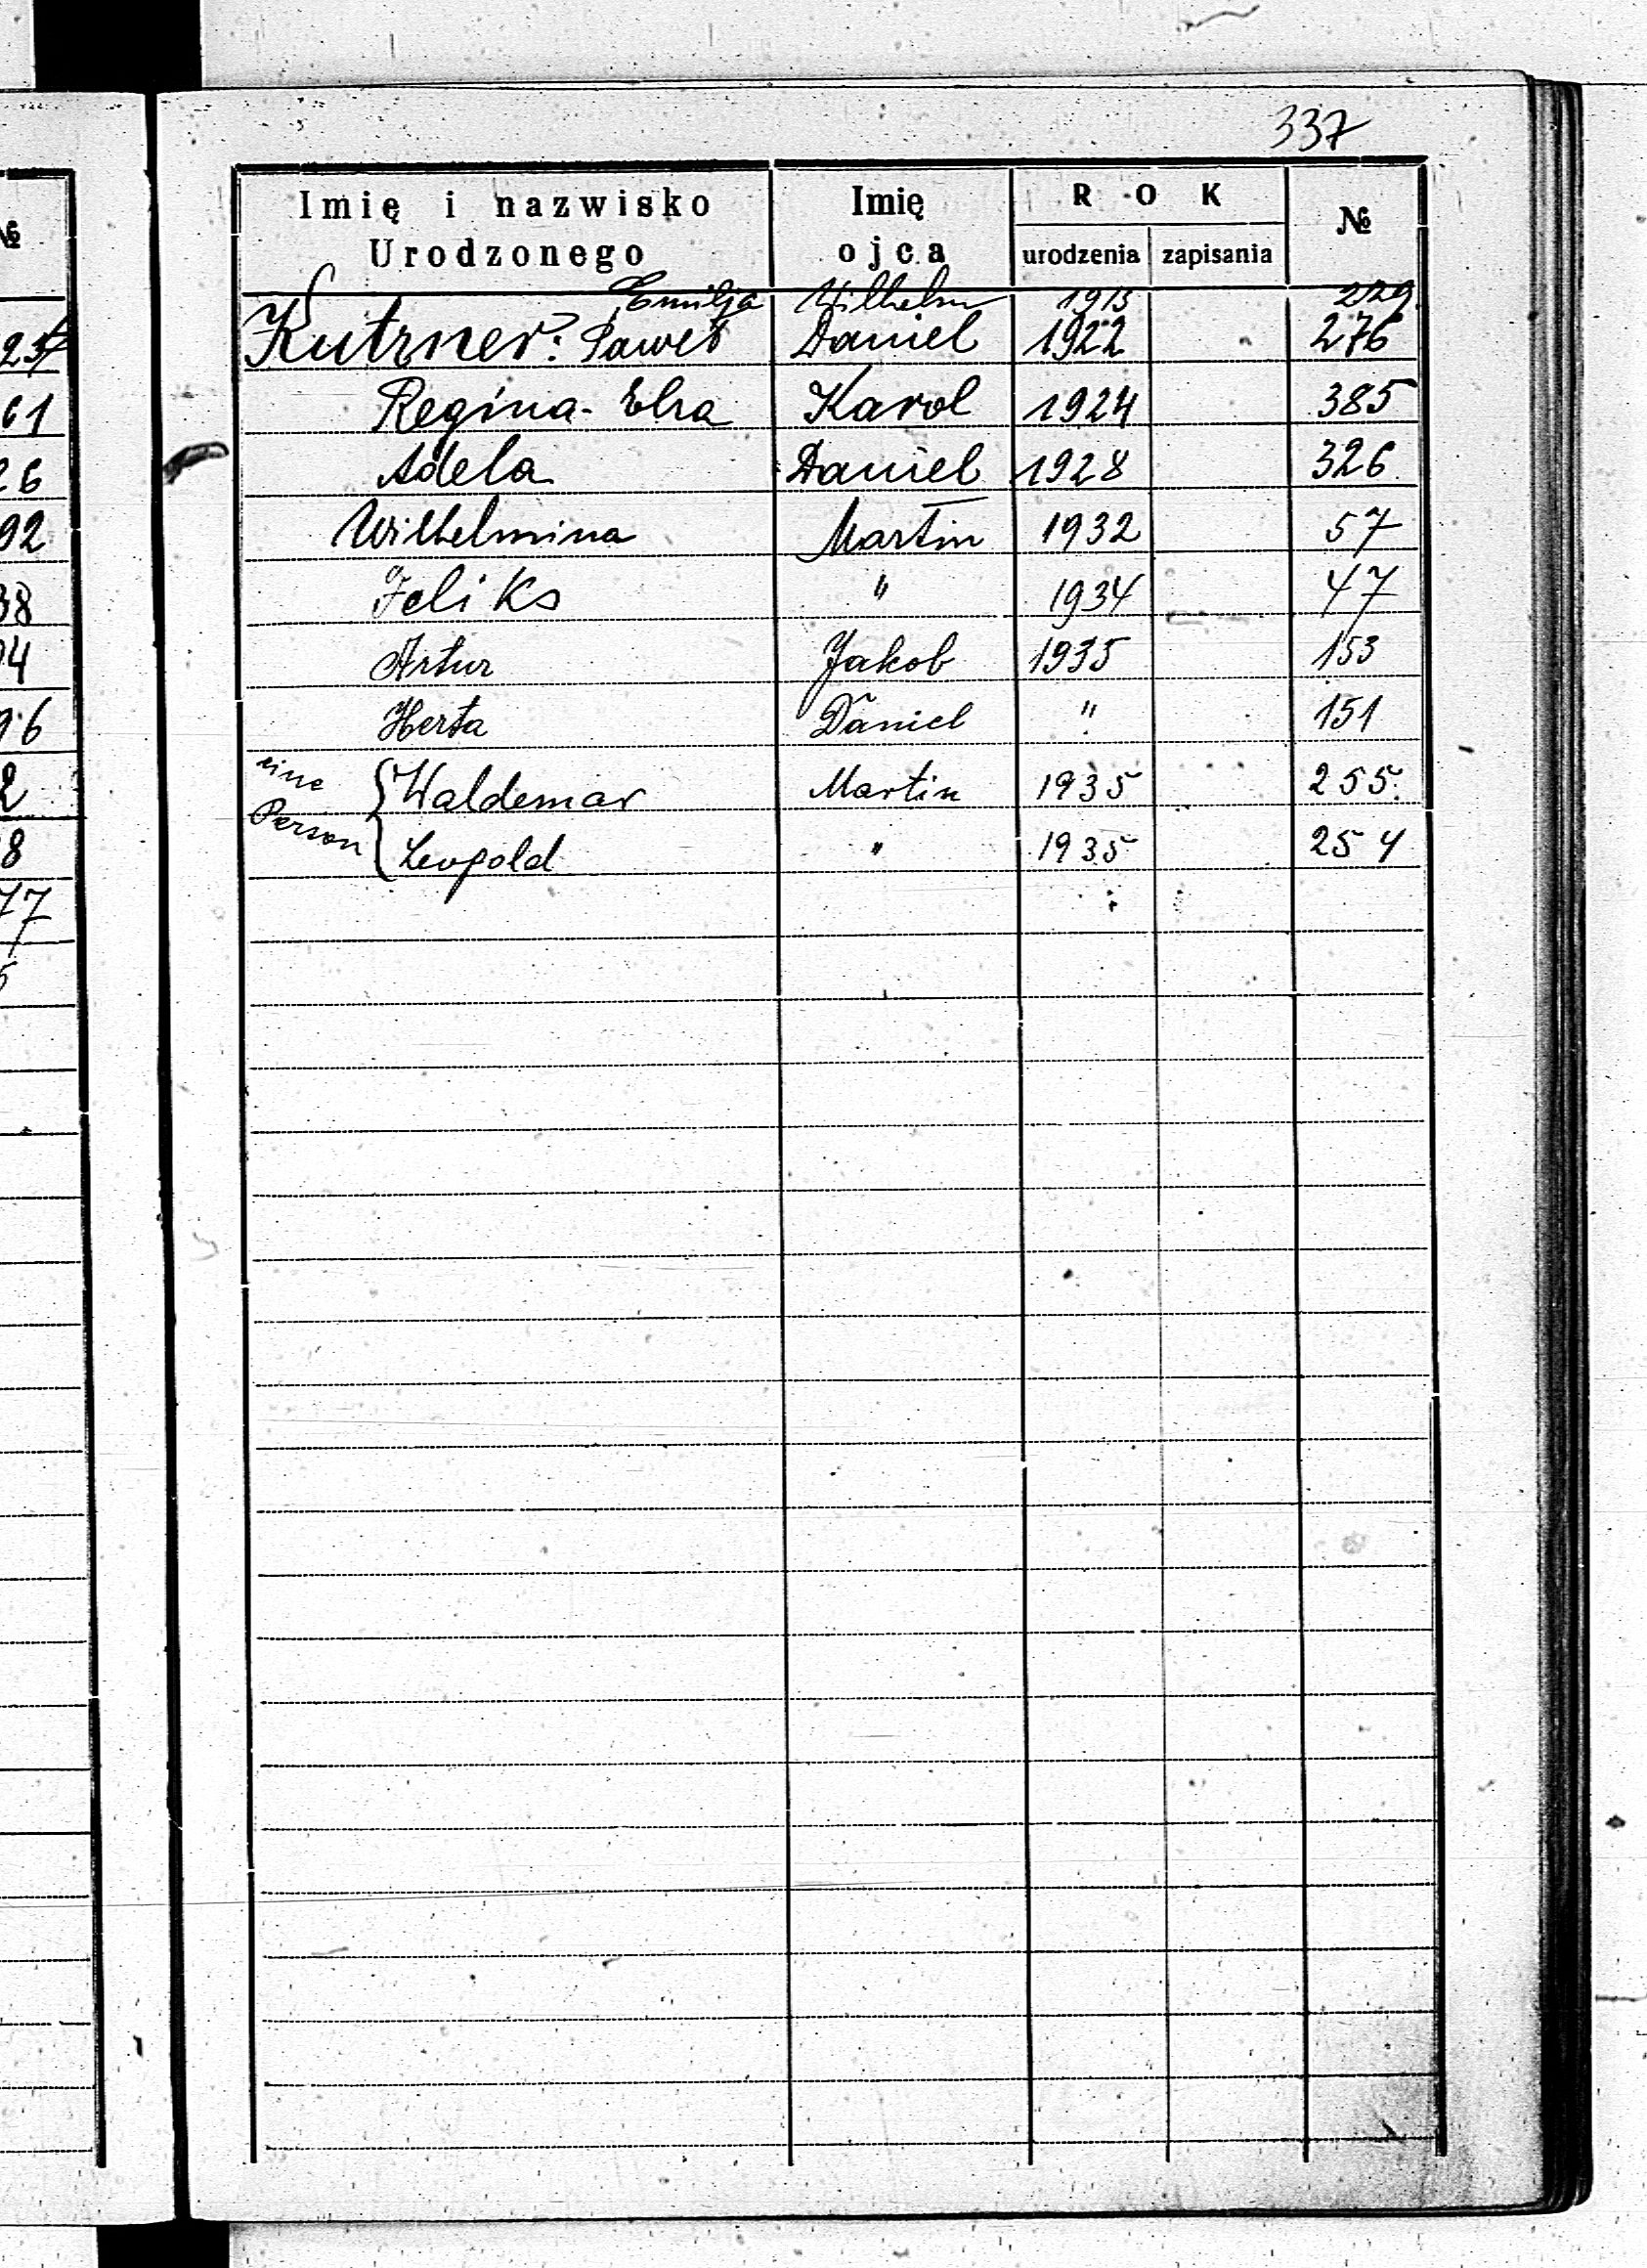 337
Imię i nazwisko Urodzonego | Imię ojca | ROK urodzenia | zapisania | №
Emilja Wilhelm 1913 229
Kutzner: Paweł Daniel 1922 276
Regina-Elza Karol 1924 385
Adela Daniel 1928 326
Wilhelmina Martin 1932 57
Feliks " 1934 47
Artur Jakob 1935 153
Herta Daniel " 151
eine Person { Waldemar Martin 1935 255.
Leopold " 1935 254
№
61
26
92
38